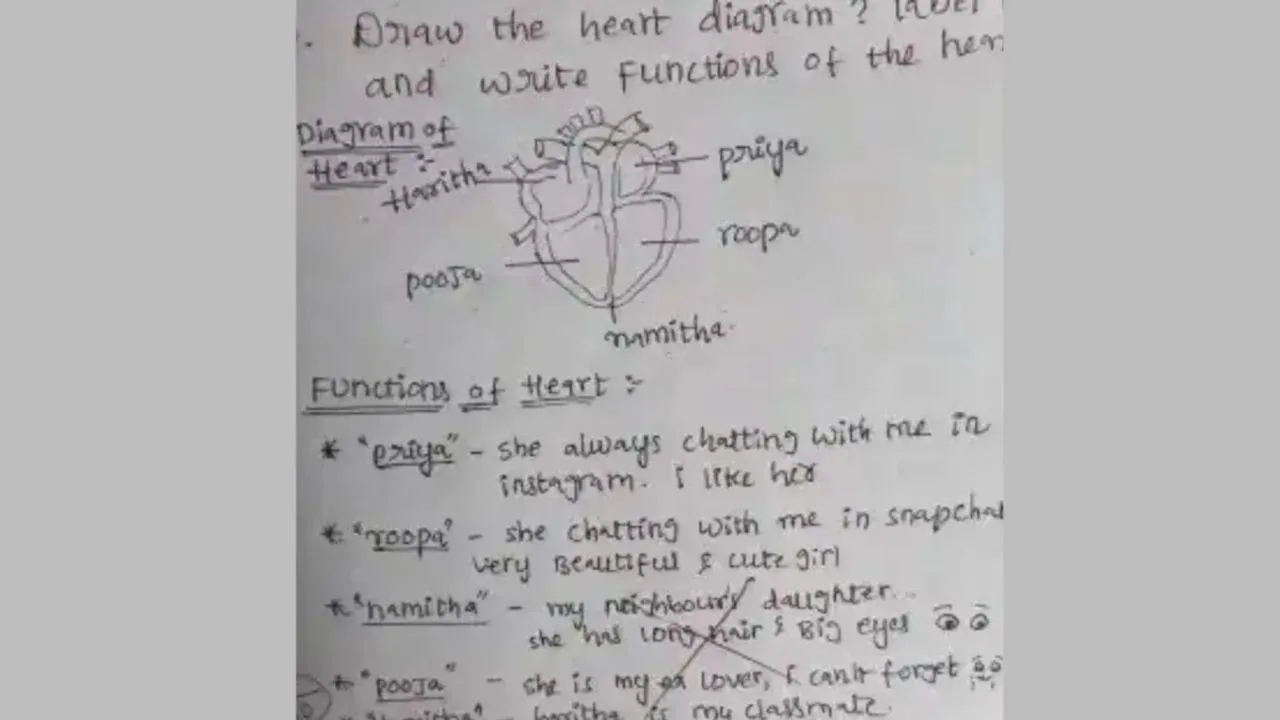 . Draw the heart diagram ? label
and write Functions of the hear
Diagram of
Heart :-
Haritha
priya
roopa
pooja
namitha.
Functions of Heart :-
* "priya" - she always chatting with me in
instagram. i like her
* "roopa" - she chatting with me in snapchat
very Beautiful & cute girl
* "namitha" - my neighbour's daughter...
she has long hair & Big eyes
* "pooja" - she is my ex lover, i can't forget
haritha is my classmate.